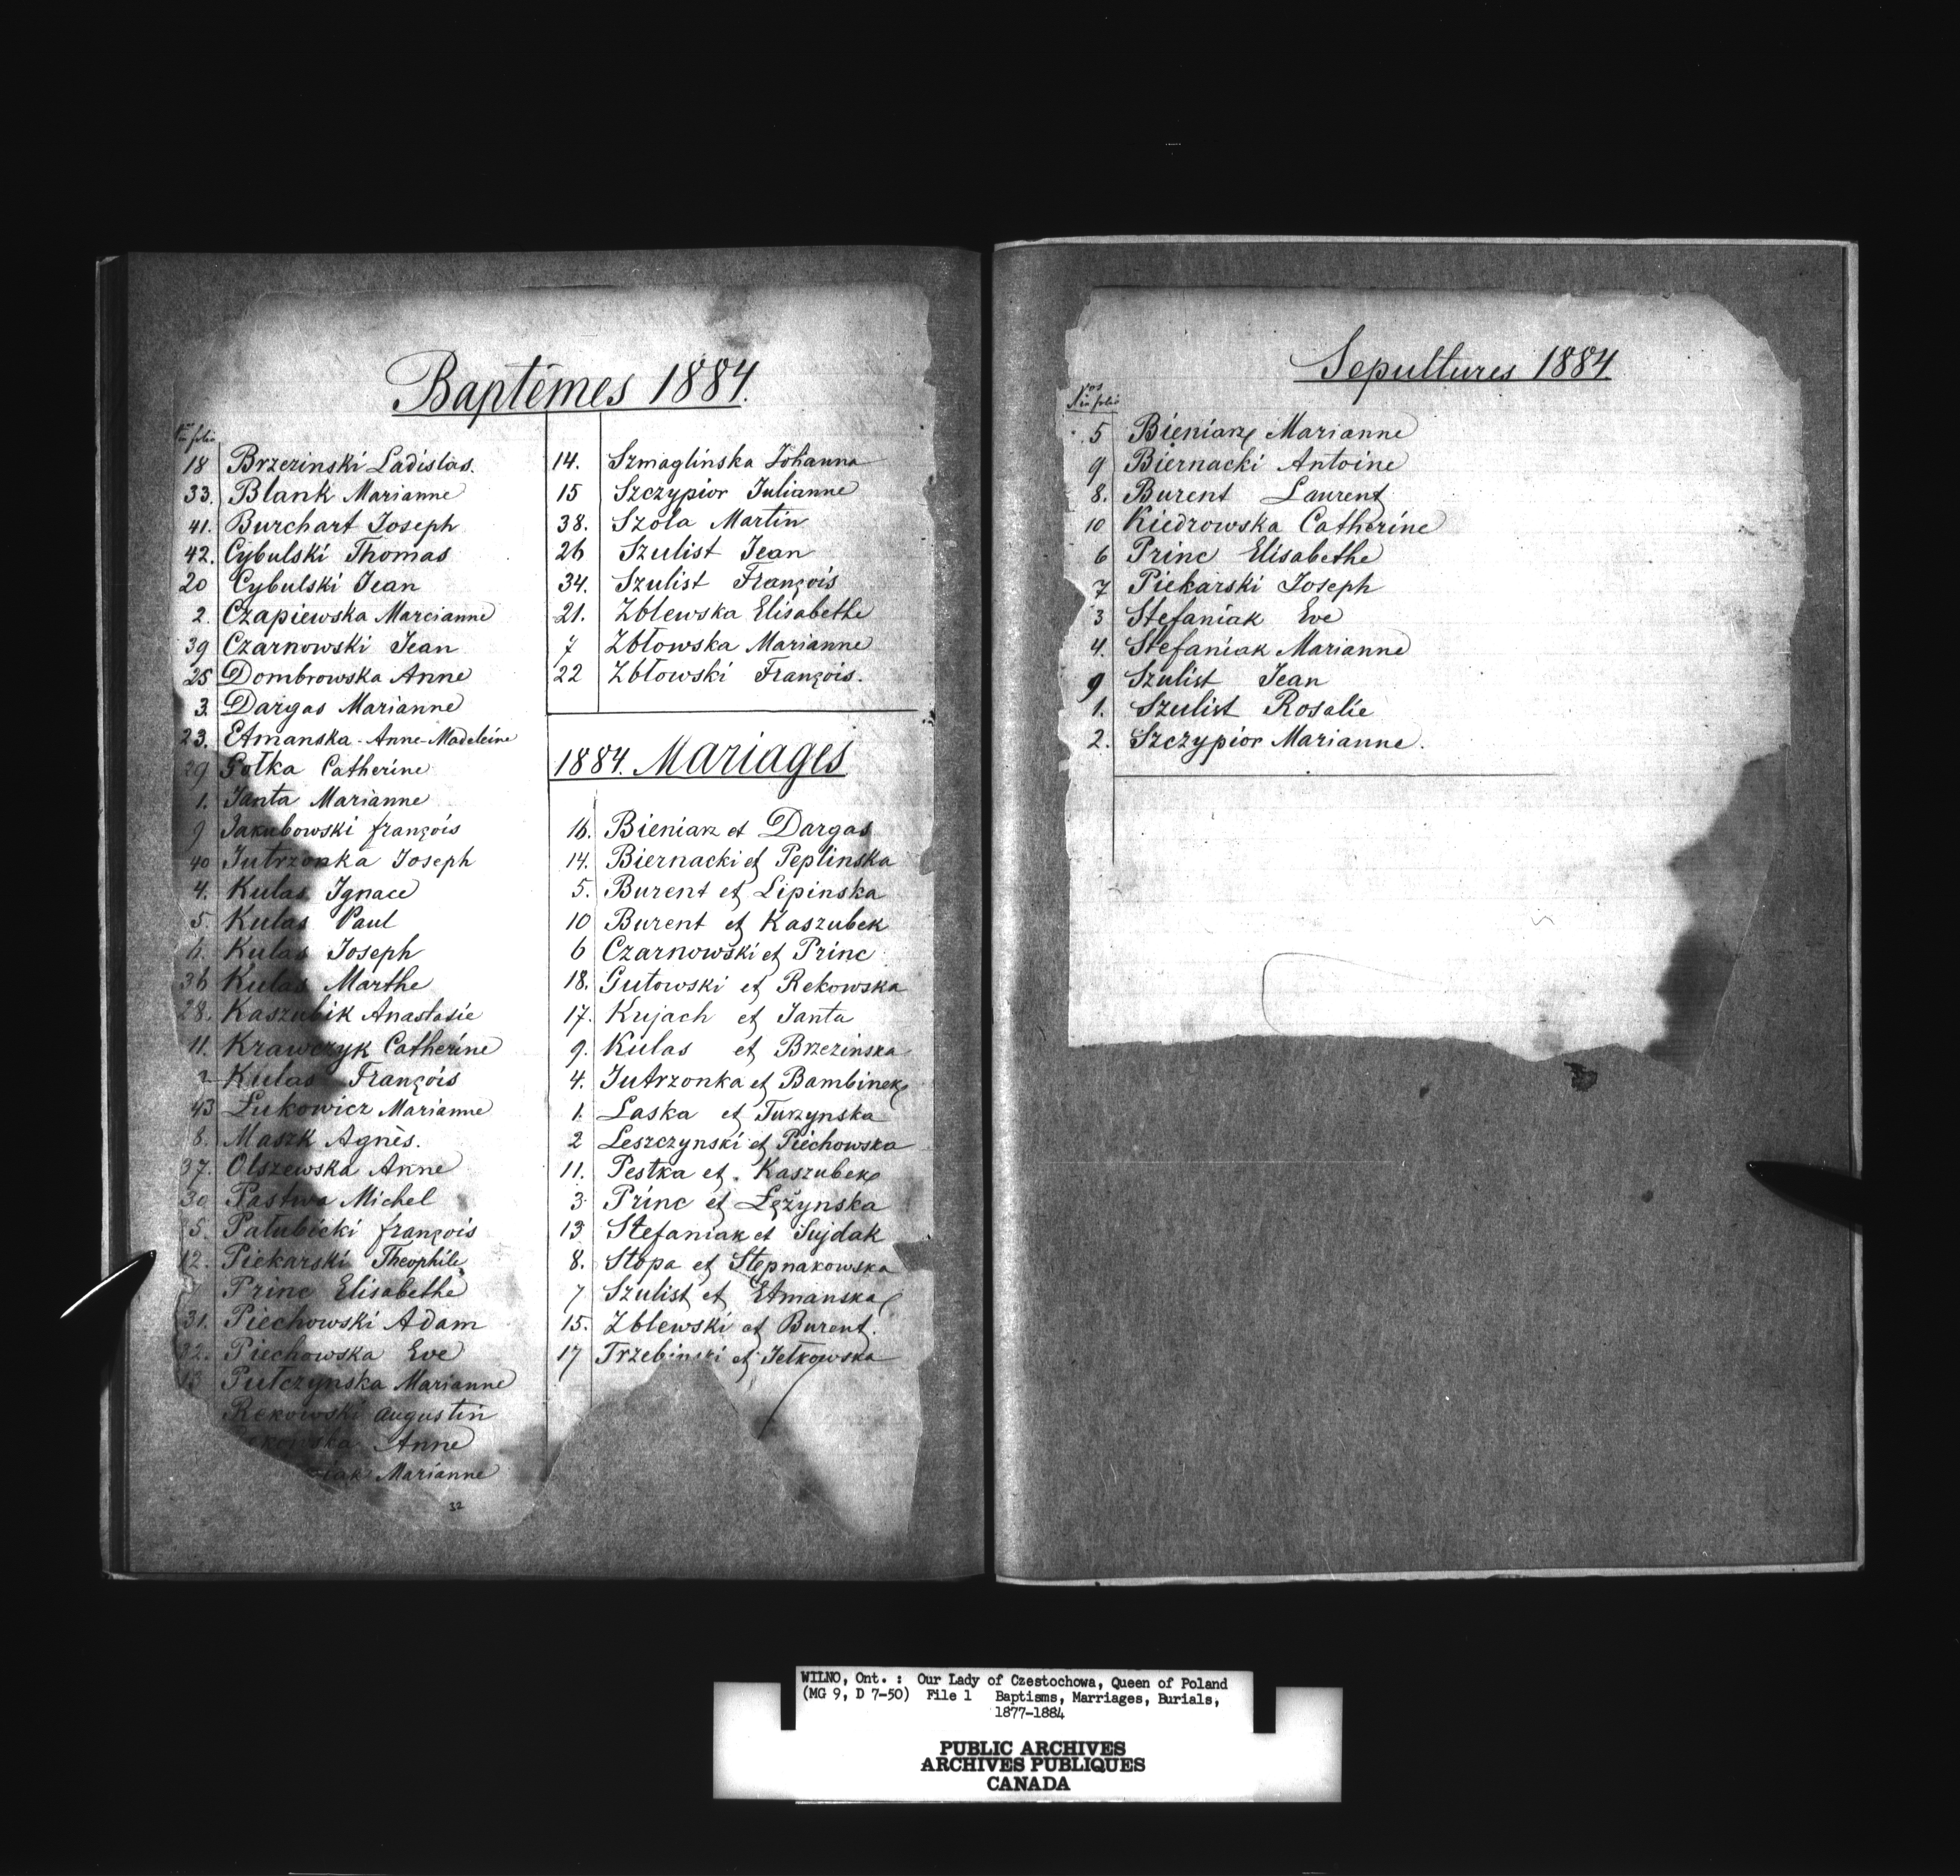 Baptêmes 1884.
Nos in folio
18 Brzezinski Ladislas.
33. Blank Marianne
41. Burchart Joseph
42. Cybulski Thomas
20 Cybulski Jean
2. Czapiewska Marcianne
39 Czarnowski Jean
25 Dombrowska Anne
3. Dargas Marianne
23. Etmanska-Anne-Madeleine
29 Gołka Catherine
1. Janta Marianne
9 Jakubowski françois
40 Jutrzonka Joseph
4. Kulas Ignace
5 Kulas Paul
Kulas Joseph
36 Kulas Marthe
28. Kaszubik Anastasie
11. Krawczyk Catherine
Kulas François
43 Lukowicz Marianne
8. Maszk Agnès.
37. Olszewska Anne
30 Pastwa Michel
5. Pałubicki françois
12. Piekarski Theophile
Princ Elisabethe
31. Piechowski Adam
32. Piechowska Eve
13 Pułczynska Marianne
Rekowski Augustin
Anne
Marianne
32
14. Szmaglinska Johanna
15 Szczypior Julianne
38. Szola Martin
26 Szulist Jean
34. Szulist François
21. Zblewska Elisabethe
7 Zbłowska Marianne
22 Zbłowski François.
1884. Mariages
16. Bieniarz et Dargas
14. Biernacki et Peplinska
5. Burent et Lipinska
10 Burent et Kaszubek
6 Czarnowski et Princ
18. Gutowski et Rekowska
17. Kujach et Janta
9. Kulas et Brzezinska
4. Jutrzonka et Bambinek
1. Laska et Turzynska
2 Leszczynski et Piechowska
11. Pestka et. Kaszubek
3 Princ et Lężynska
13 Stefaniak et Sujdak
8. Stopa et Stepnakowska
7 Szulist et Etmanska
15. Zblewski et Burent.
17 Trzebinski et Jetkowska
Sepultures 1884
Nos in folio
5 Bieniarz Marianne
9 Biernacki Antoine
8. Burent Laurent
10 Kiedrowska Catherine
6 Princ Elisabethe
7 Piekarski Joseph
3 Stefaniak Eve
4. Stefaniak Marianne
9 Szulist Jean
1. Szulist Rosalie
2. Szczypior Marianne.
WILNO, Ont. : Our Lady of Czestochowa, Queen of Poland
(MG 9, D 7-50) File 1 Baptisms, Marriages, Burials,
1877-1884
PUBLIC ARCHIVES
ARCHIVES PUBLIQUES
CANADA